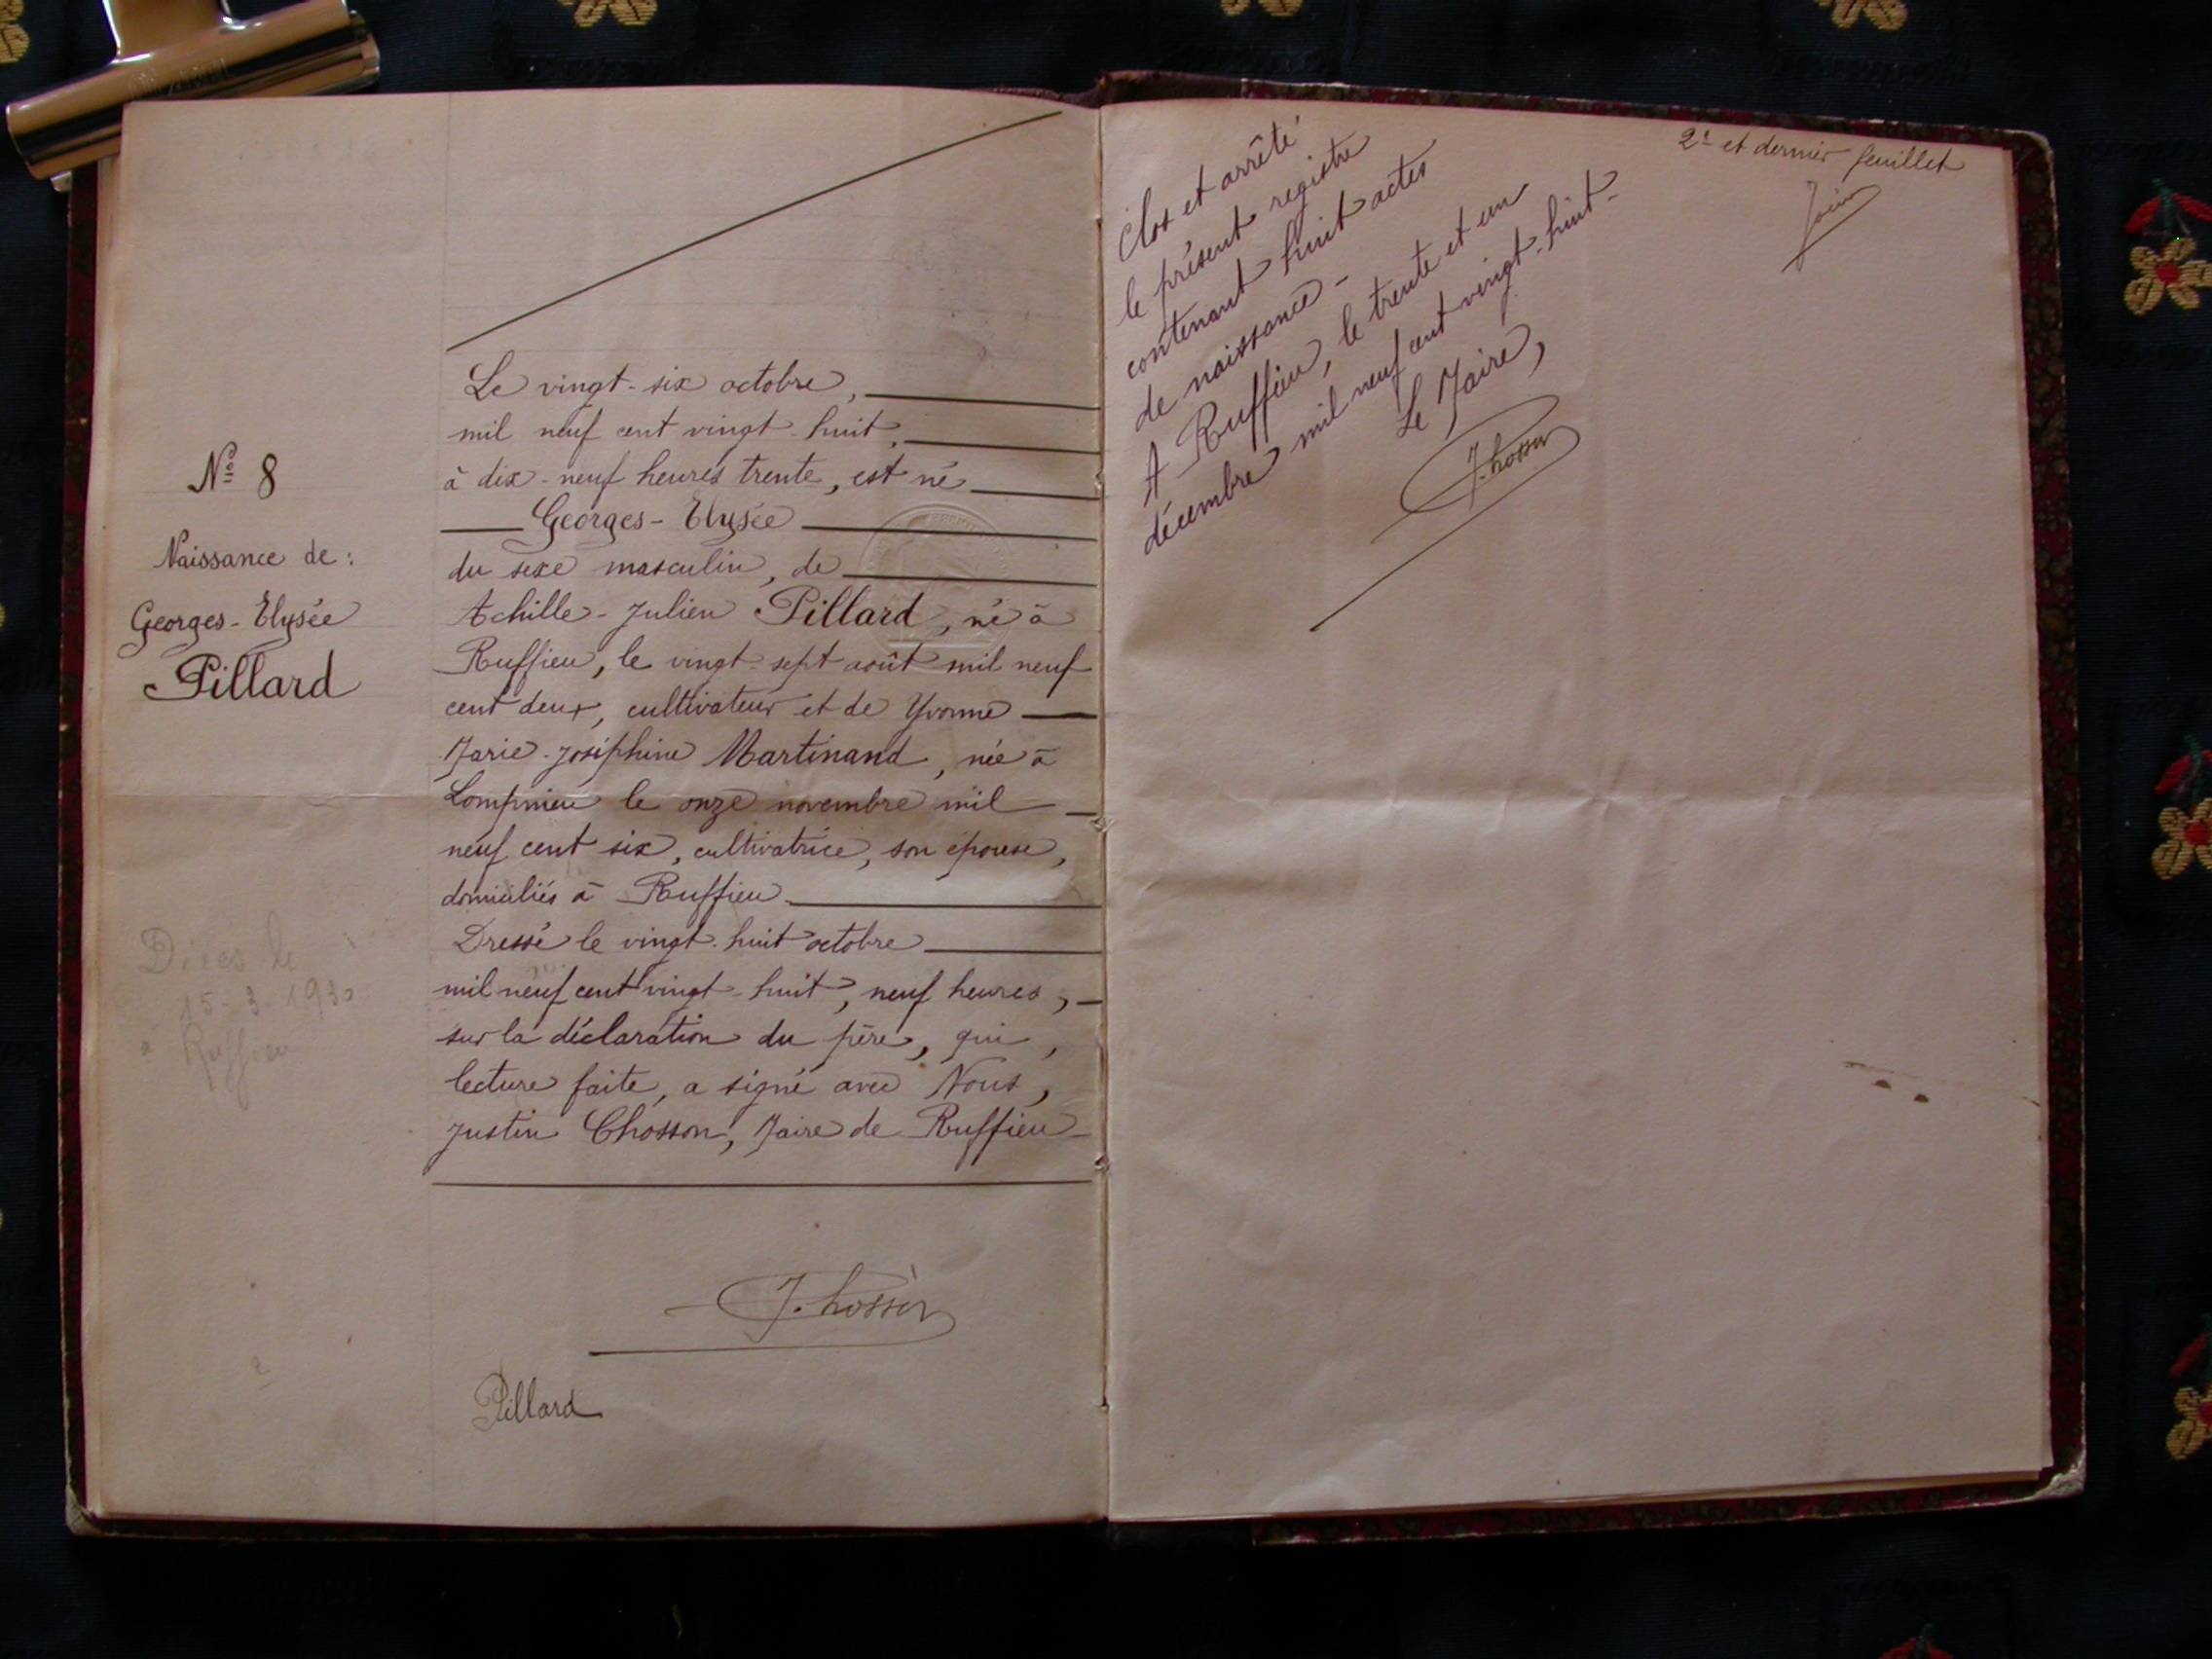 Nº 8
Naissance de :
Georges-Elysée
Pillard
Décès le
15-3-1930
à Ruffieu
2
Le vingt-six octobre,
mil neuf cent vingt-huit,
à dix-neuf heures trente, est né
Georges-Elysée
du sexe masculin, de
Achille-Julien Pillard, né à
Ruffieu, le vingt-sept août mil neuf
cent deux, cultivateur et de Yvonne
Marie-Joséphine Martinand, née à
Lompnieu le onze novembre mil
neuf cent six, cultivatrice, son épouse,
domiciliés à Ruffieu
Dressé le vingt-huit octobre
mil neuf cent vingt-huit, neuf heures,
sur la déclaration du père, qui,
lecture faite, a signé avec Nous,
Justin Chosson, Maire de Ruffieu
J. Chosson
Pillard
2e et dernier feuillet
Clos et arrêté
le présent registre
contenant huit actes
de naissance-
A Ruffieu, le trente et un
décembre mil neuf cent vingt-huit-
Le Maire,
J. Chosson